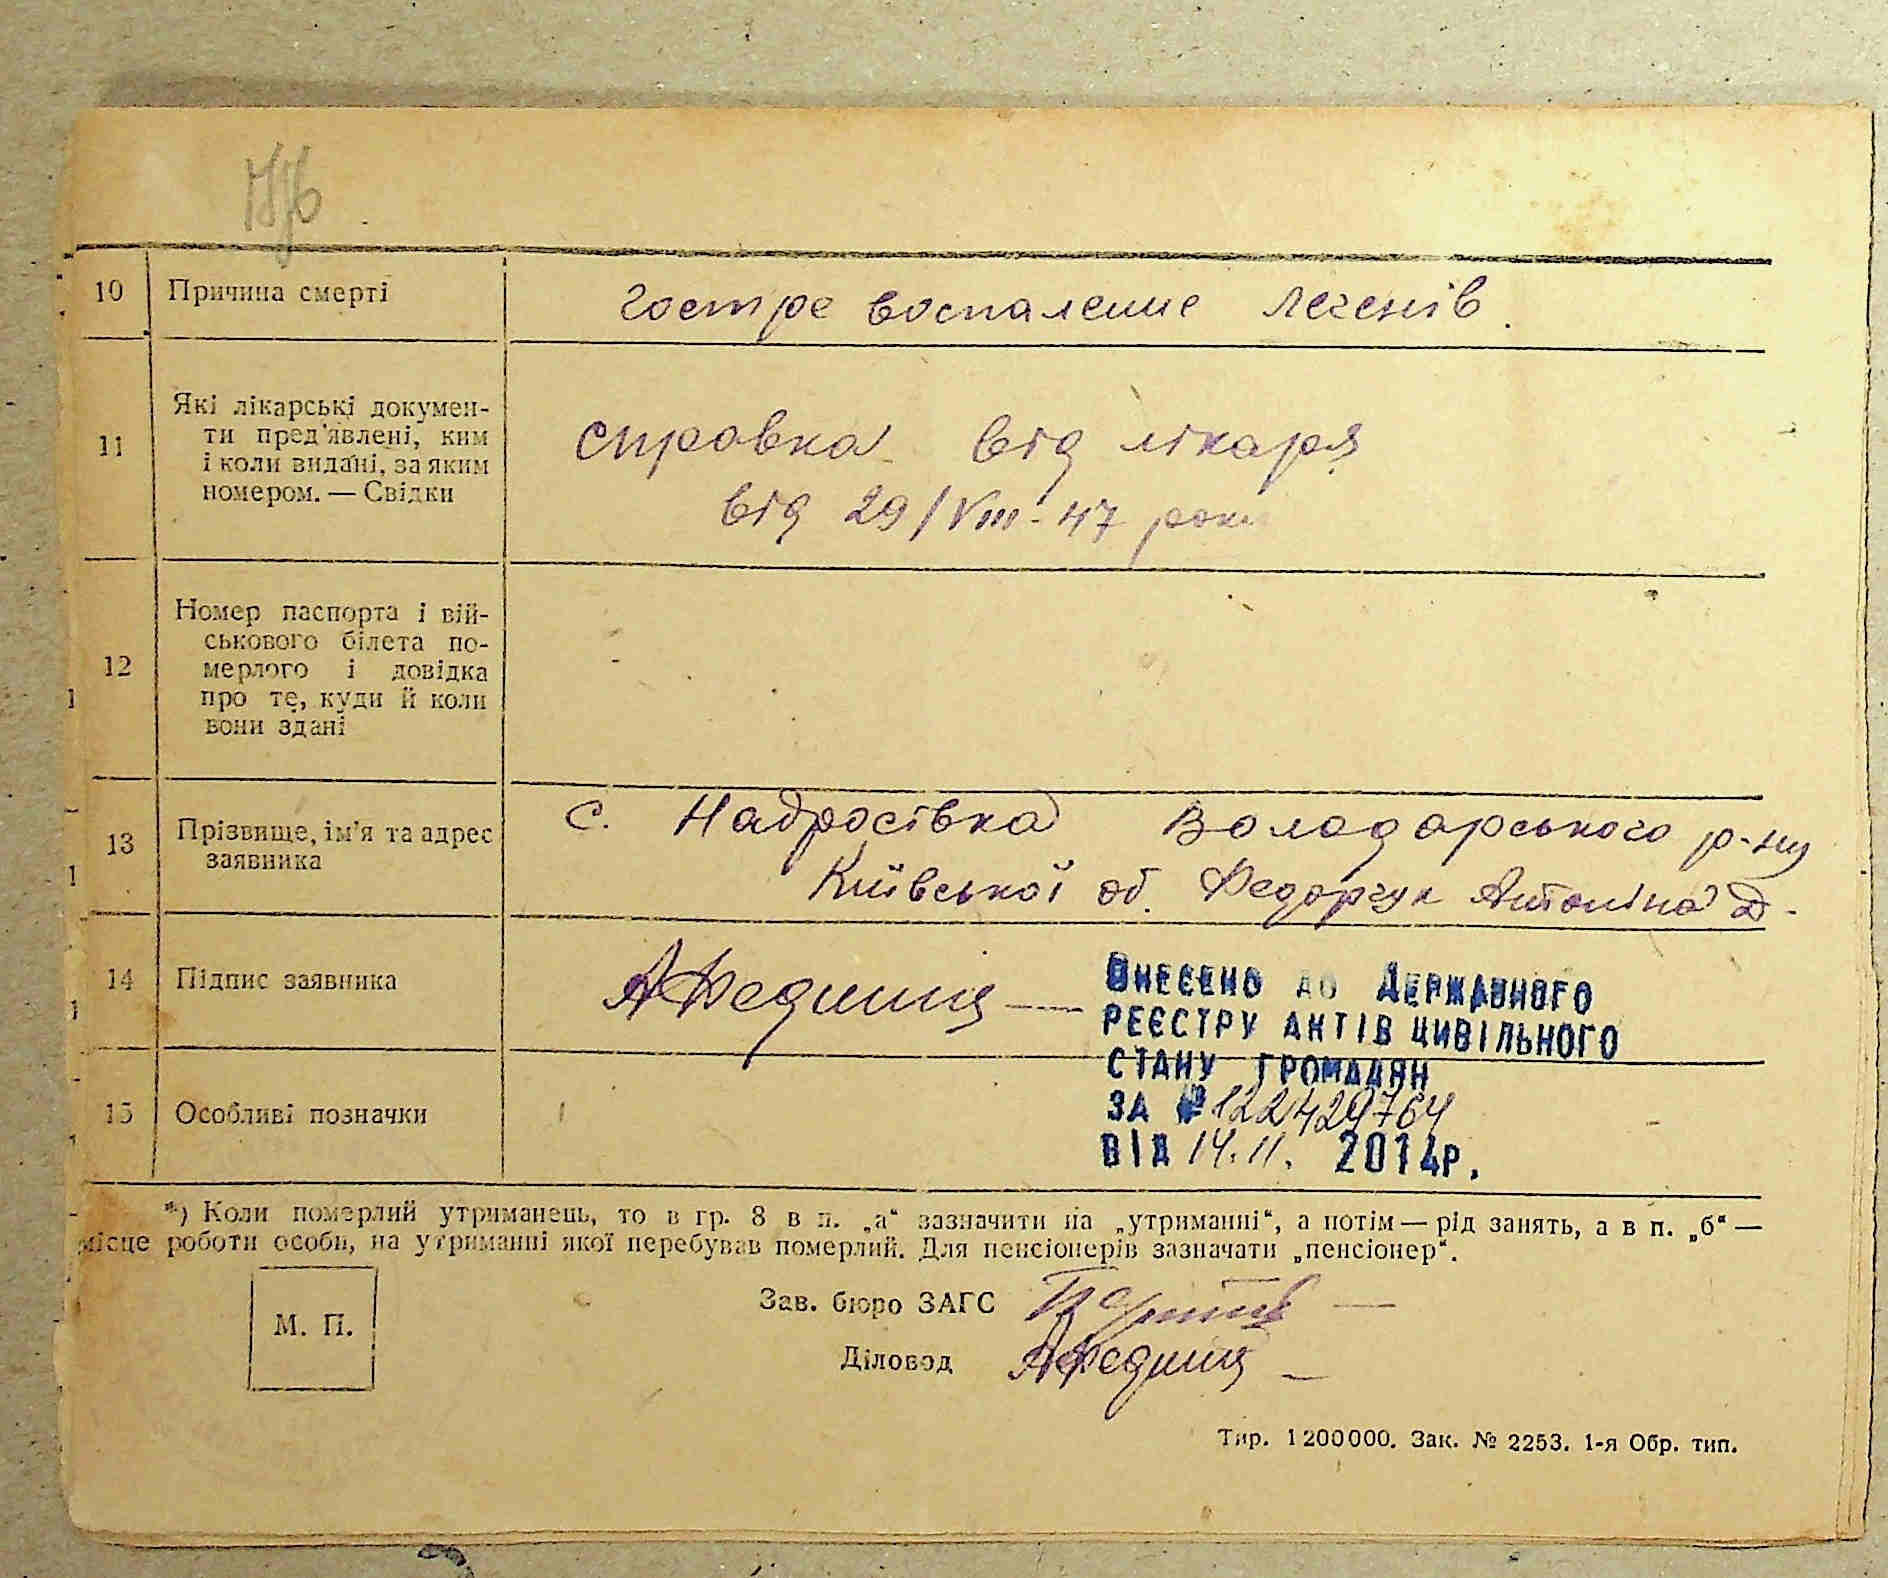 10 Причина смерті гостре воспаление легенів.
11 Які лікарські докумен-
ти пред'явлені, ким
і коли видані, за яким
номером. — Свідки
справка від лікаря
від 29/VIII-47 року
12 Номер паспорта і вій-
ськового білета по-
мерлого і довідка
про те, куди й коли
вони здані
13 Прізвище, ім'я та адрес
заявника
с. Надросівка Володарського р-ну
Київської об. Федорчук Антоніна Д.
14 Підпис заявника
15 Особливі позначки
ВНЕСЕНО ДО ДЕРЖАВНОГО
РЕЄСТРУ АКТІВ ЦИВІЛЬНОГО
СТАНУ ГРОМАДЯН
ЗА № 122429764
ВІД 14.11. 2014р.
*) Коли померлий утриманець, то в гр. 8 в п. „а“ зазначити на „утриманні“, а потім — рід занять, а в п. „б“ —
місце роботи особи, на утриманні якої перебував померлий. Для пенсіонерів зазначати „пенсіонер“.
М. П.
Зав. бюро ЗАГС
Діловод
Тир. 1200000. Зак. № 2253. 1-я Обр. тип.